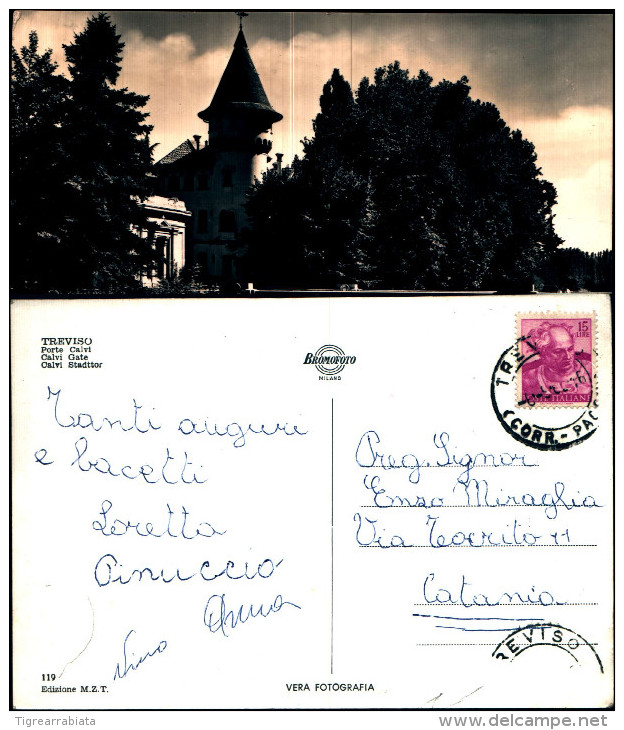 TREVISO
Porte Calvi
Calvi Gate
Calvi Stadttor
BROMOFOTO
MILANO
15
LIRE
POSTE ITALIANE
TREV
(CORR.-PAC
Tanti auguri
e bacetti
Loretta
Pinuccio
Anna
Nino
Preg. Signor
Enzo Miraglia
Via Teocrito 11
Catania
TREVISO
119
Edizione M.Z.T.
VERA FOTOGRAFIA
Tigrearrabiata
www.delcampe.net